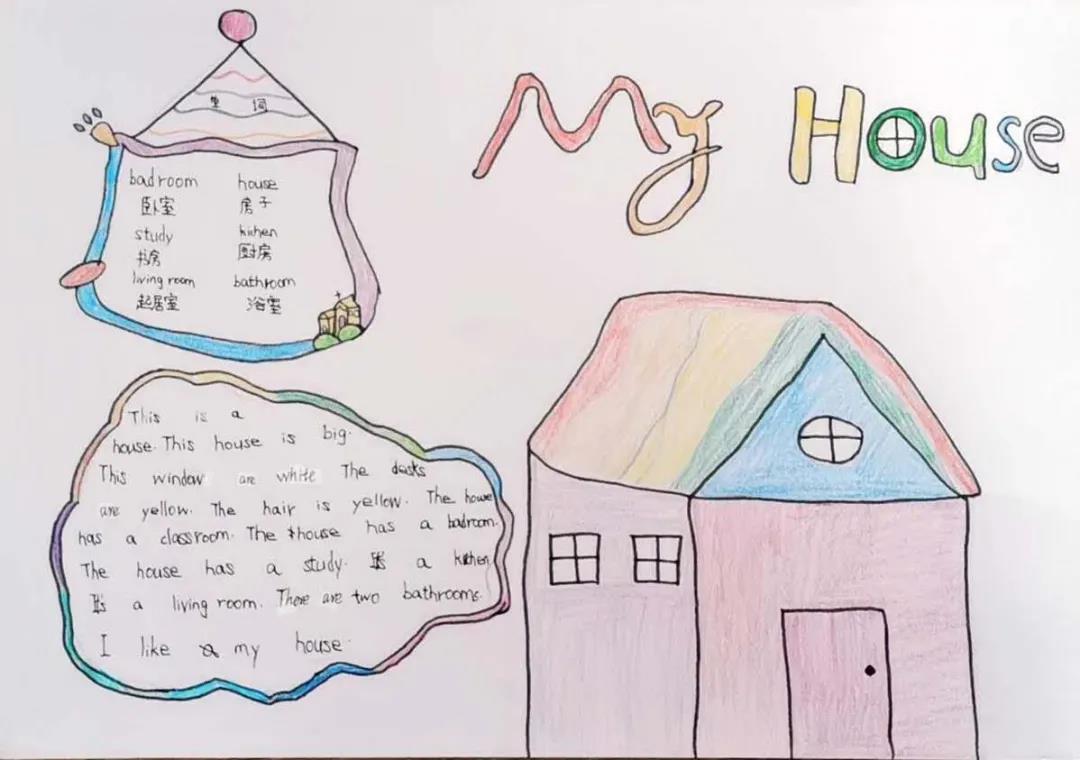 My House
单词
badroom house
卧室 房子
study kichen
书房 厨房
living room bathroom
起居室 浴室
This is a
house. This house is big.
This window are white The desks
are yellow. The hair is yellow. The house
has a classroom. The house has a badroom.
The house has a study. It's a kichen
It's a living room. There are two bathrooms.
I like my house.